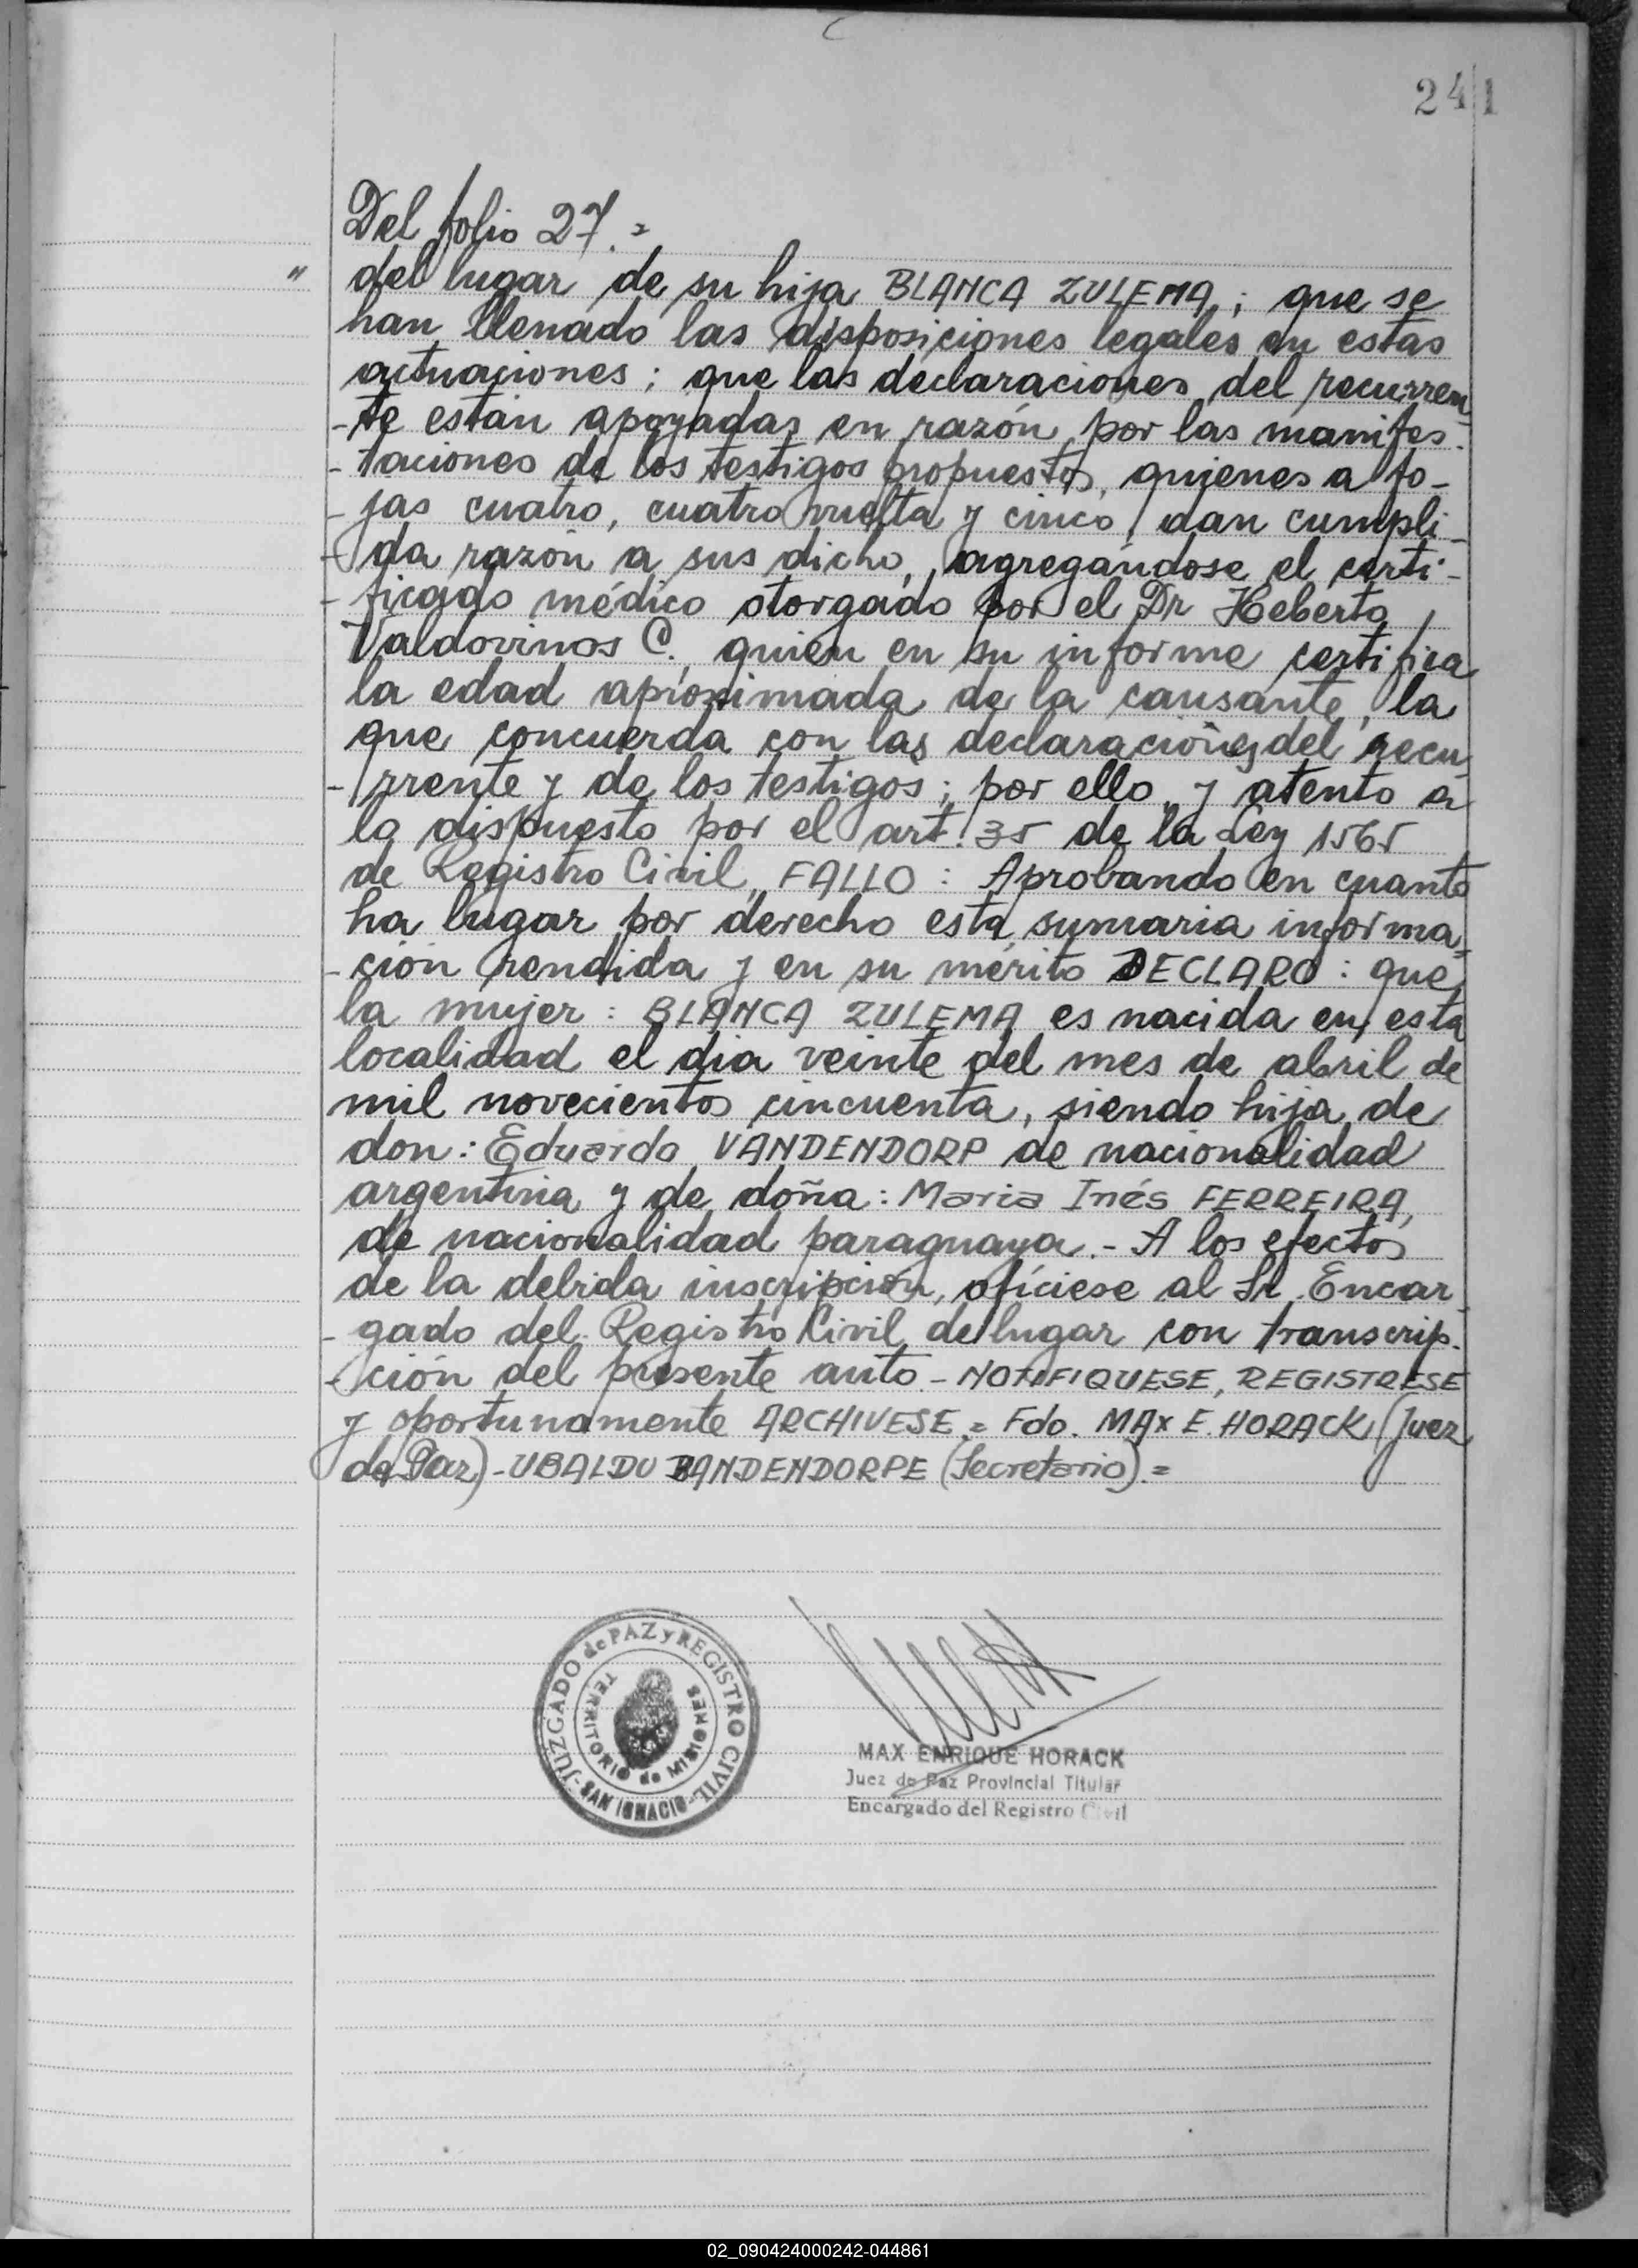 241
Del folio 27.=
" del lugar de su hija BLANCA ZULEMA; que se
han llenado las disposiciones legales en estas
actuaciones; que las declaraciones del recurren
-te están apoyadas en razón por las manifes-
-taciones de los testigos propuestos, quienes a fo-
-jas cuatro, cuatro vuelta y cinco, dan cumpli-
-da razón a sus dicho, agregándose el certi-
-ficado médico otorgado por el Dr Heberto
Valdovinos C. quien en su informe certifica
la edad aproximada de la causante, la
que concuerda con las declaraciones del recu
-rrente y de los testigos; por ello y atento a
lo dispuesto por el art. 35 de la Ley 1565
de Registro Civil, FALLO: Aprobando en cuanto
ha lugar por derecho esta sumaria informa-
-ción rendida y en su mérito DECLARO: que
la mujer: BLANCA ZULEMA es nacida en esta
localidad el dia veinte del mes de abril de
mil novecientos cincuenta, siendo hija de
don: Eduardo VANDENDORP de nacionalidad
argentina y de doña: Maria Inés FERREIRA,
de nacionalidad paraguaya.- A los efectos
de la debida inscripción, ofíciese al Sr. Encar-
-gado del Registro Civil del lugar con transcrip-
-ción del presente auto.- NOTIFIQUESE, REGISTRESE
y oportunamente ARCHIVESE.= Fdo. MAX E. HORACK (Juez
de Paz)-UBALDO BANDENDORPE (Secretario).=
JUZGADO de PAZ y REGISTRO CIVIL
TERRITORIO de MISIONES
-SAN IGNACIO-
MAX ENRIQUE HORACK
Juez de Paz Provincial Titular
Encargado del Registro Civil
02_090424000242-044861